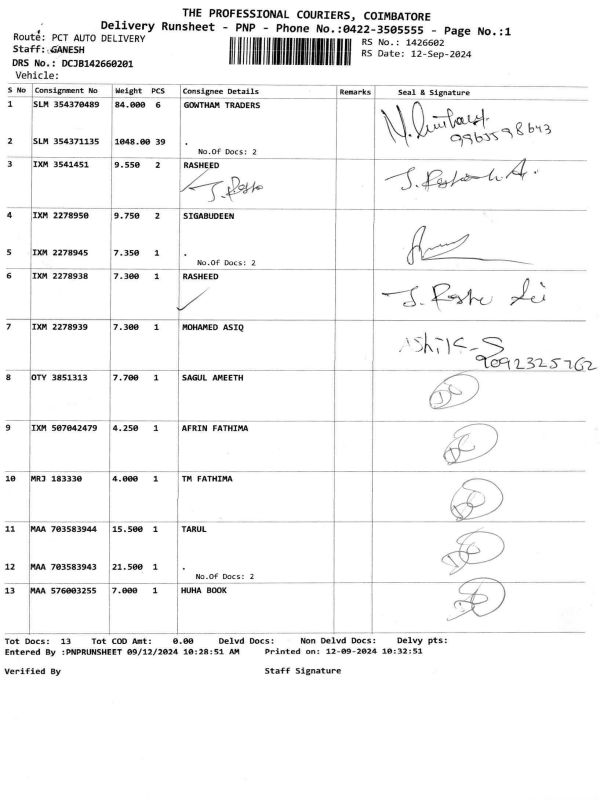 THE PROFESSIONAL COURIERS, COIMBATORE
Delivery Runsheet - PNP - Phone No.:0422-3505555 - Page No.:1
Route: PCT AUTO DELIVERY
RS No.: 1426602
Staff: GANESH
RS Date: 12-Sep-2024
DRS No.: DCJB142660201
Vehicle:
S No Consignment No Weight PCS Consignee Details Remarks Seal & Signature
1 SLM 354370489 84.000 6 GOWTHAM TRADERS
2 SLM 354371135 1048.00 39 .
No.Of Docs: 2
3 IXM 3541451 9.550 2 RASHEED
4 IXM 2278950 9.750 2 SIGABUDEEN
5 IXM 2278945 7.350 1 .
No.Of Docs: 2
6 IXM 2278938 7.300 1 RASHEED
7 IXM 2278939 7.300 1 MOHAMED ASIQ
AShiK-S
9092325762
8 OTY 3851313 7.700 1 SAGUL AMEETH
9 IXM 507042479 4.250 1 AFRIN FATHIMA
10 MRJ 183330 4.000 1 TM FATHIMA
11 MAA 703583944 15.500 1 TARUL
12 MAA 703583943 21.500 1 .
No.Of Docs: 2
13 MAA 576003255 7.000 1 HUHA BOOK
Tot Docs: 13 Tot COD Amt: 0.00 Delvd Docs: Non Delvd Docs: Delvy pts:
Entered By :PNPRUNSHEET 09/12/2024 10:28:51 AM Printed on: 12-09-2024 10:32:51
Verified By Staff Signature